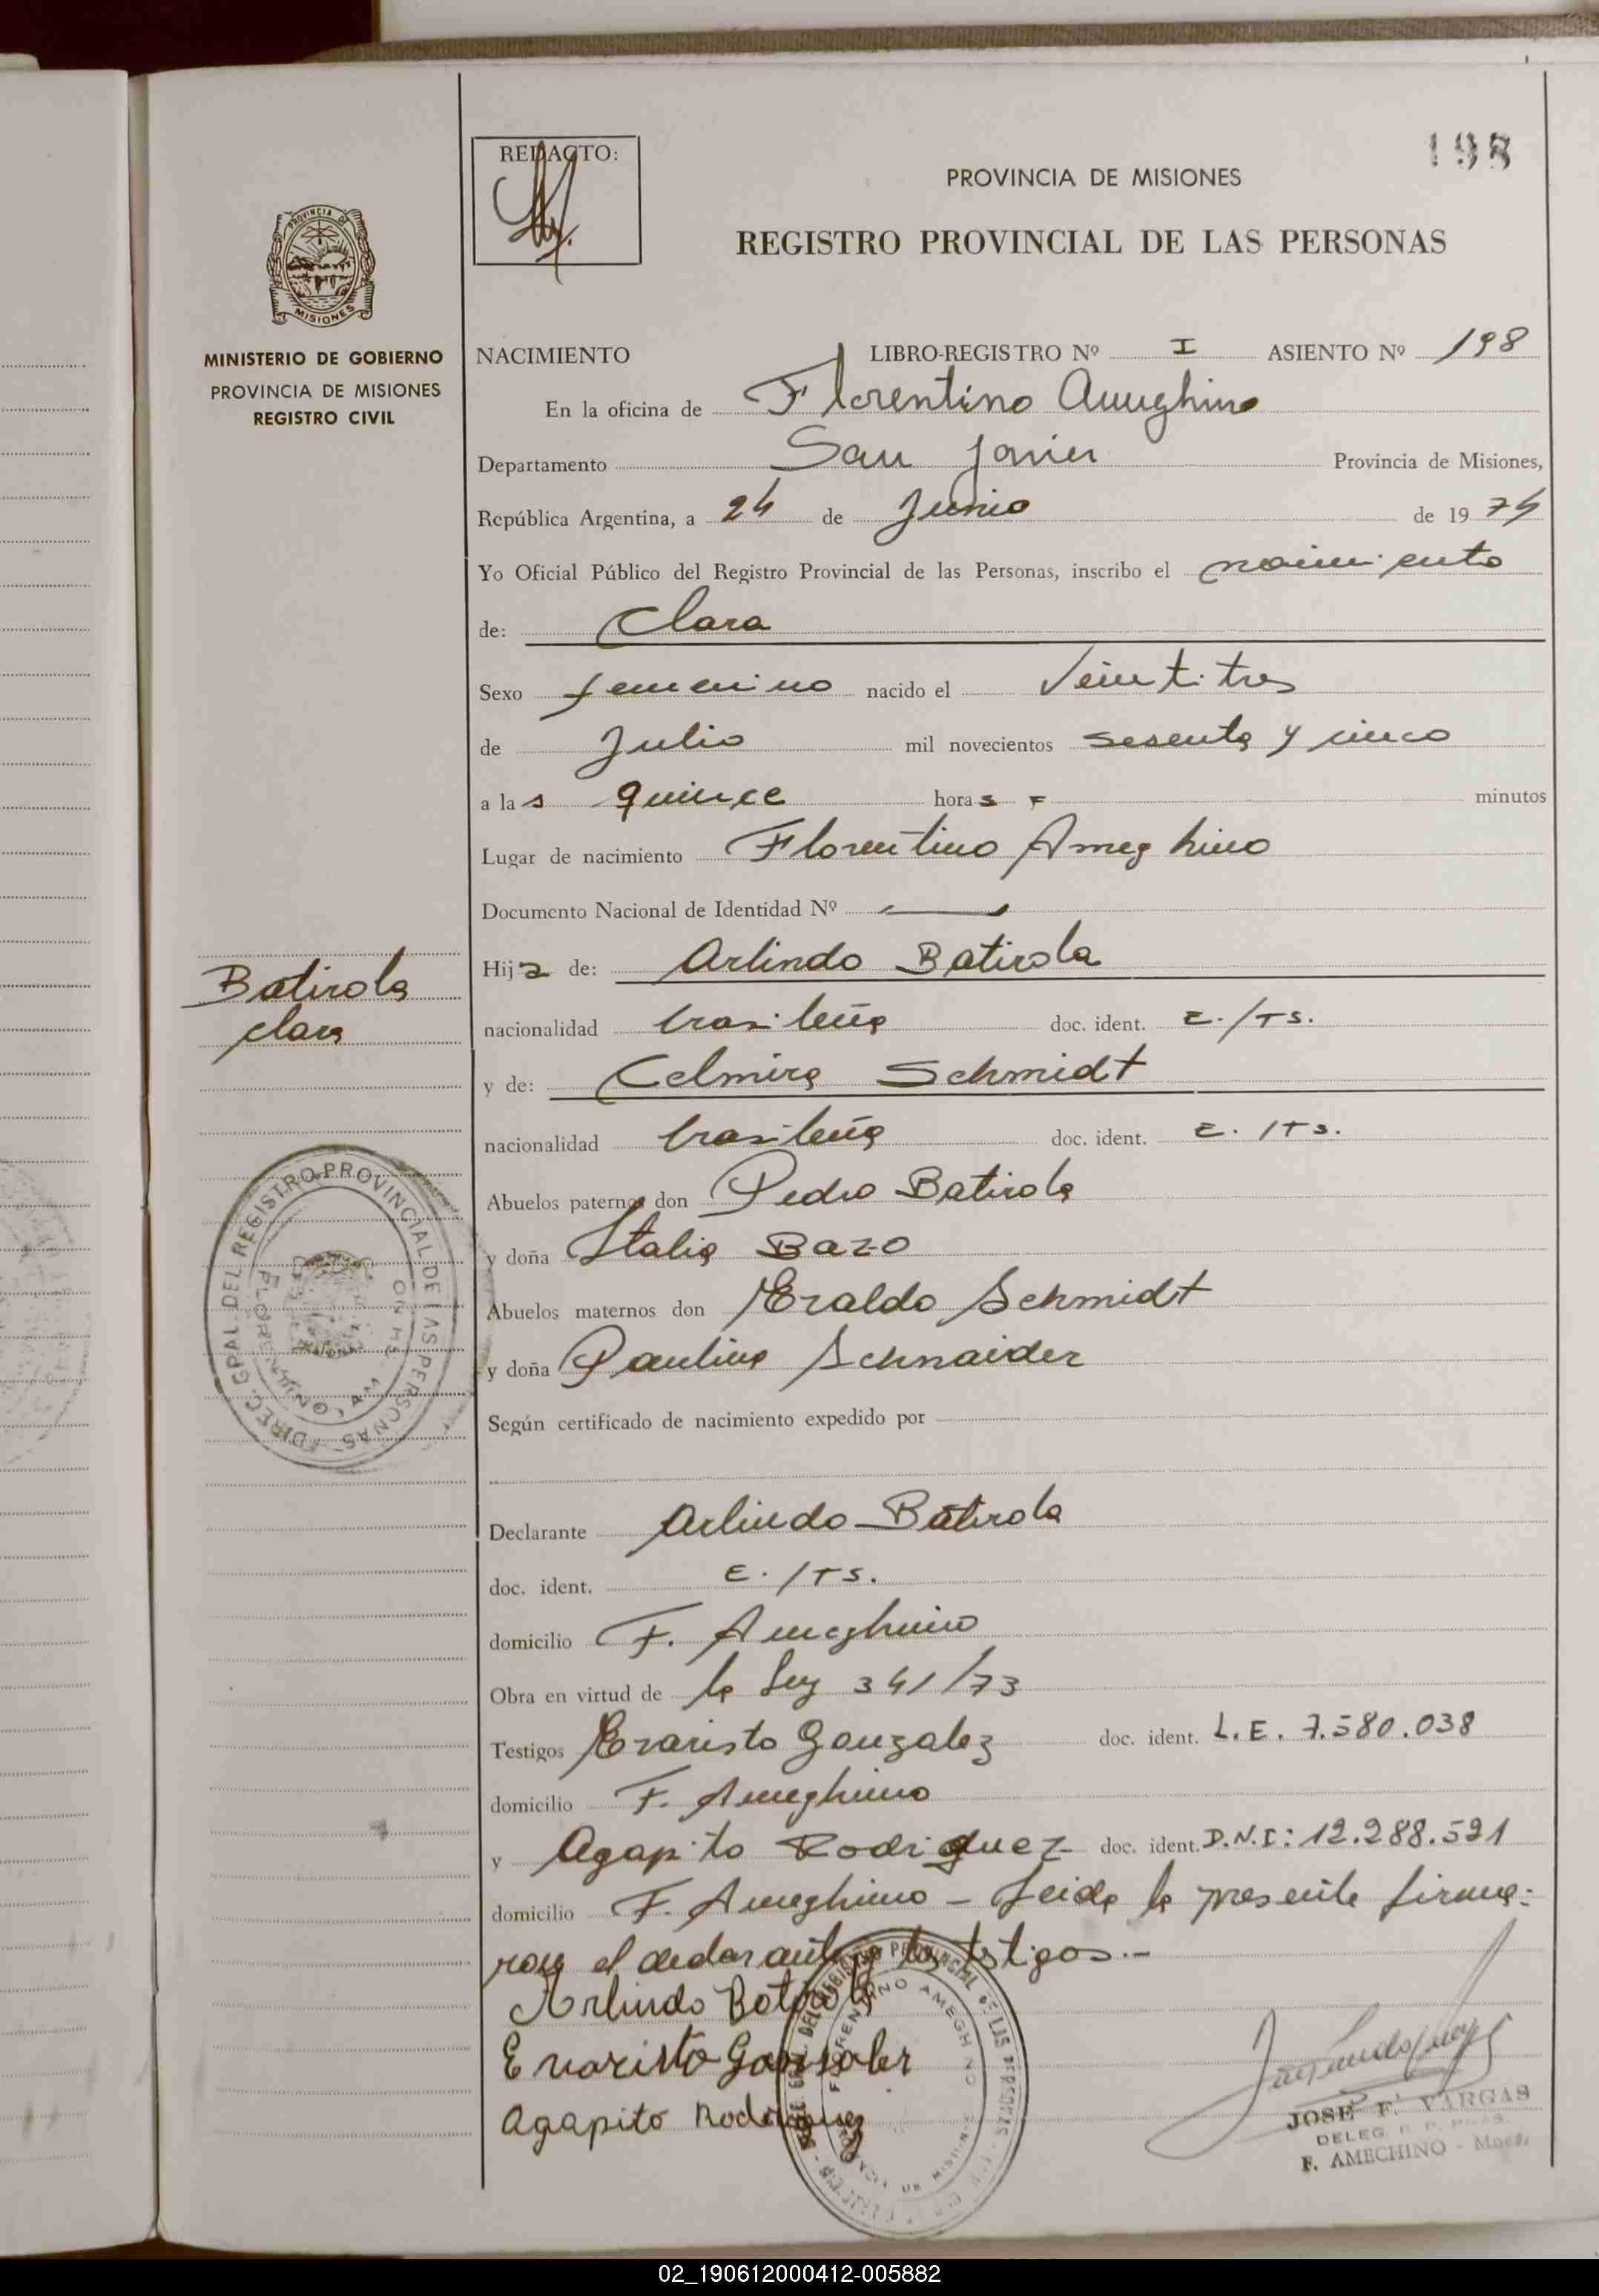 198
REDACTO:
PROVINCIA DE MISIONES
REGISTRO PROVINCIAL DE LAS PERSONAS
PROVINCIA DE
MISIONES
MINISTERIO DE GOBIERNO
PROVINCIA DE MISIONES
REGISTRO CIVIL
NACIMIENTO LIBRO-REGISTRO Nº I ASIENTO Nº 198
En la oficina de Florentino Ameghino
Departamento San Javier Provincia de Misiones,
República Argentina, a 24 de Junio de 1974
Yo Oficial Público del Registro Provincial de las Personas, inscribo el nacimiento
de: Clara
Sexo femenino nacido el Veintitres
de Julio mil novecientos sesenta y cinco
a las quince horas minutos
Lugar de nacimiento Florentino Ameghino
Documento Nacional de Identidad Nº —
Hija de: Arlindo Batirola
Batirola
Clara
nacionalidad brasileña doc. ident. E./TS.
y de: Celmira Schmidt
nacionalidad brasileña doc. ident. E./TS.
Abuelos paternos don Pedro Batirola
y doña Italia Bazo
Abuelos maternos don Eraldo Schmidt
y doña Paulina Schnaider
DIREC. GRAL. DEL REGISTRO PROVINCIAL DE LAS PERSONAS
Según certificado de nacimiento expedido por
Declarante Arlindo Batirola
doc. ident. E./TS.
domicilio F. Ameghino
Obra en virtud de la Ley 341/73
Testigos Evaristo Gonzalez doc. ident. L.E. 7.580.038
domicilio F. Ameghino
y Agapito Rodriguez doc. ident. D.N.I: 12.288.521
domicilio F. Ameghino — Leida la presente firma-
ron el declarante y los testigos.-
Arlindo Batirola
Evaristo Gonzalez
Agapito Rodriguez
FLORENTINO AMEGHINO
JOSE F. VARGAS
DELEG. R. P. PERS.
F. AMEGHINO - Mnes.
02_190612000412-005882